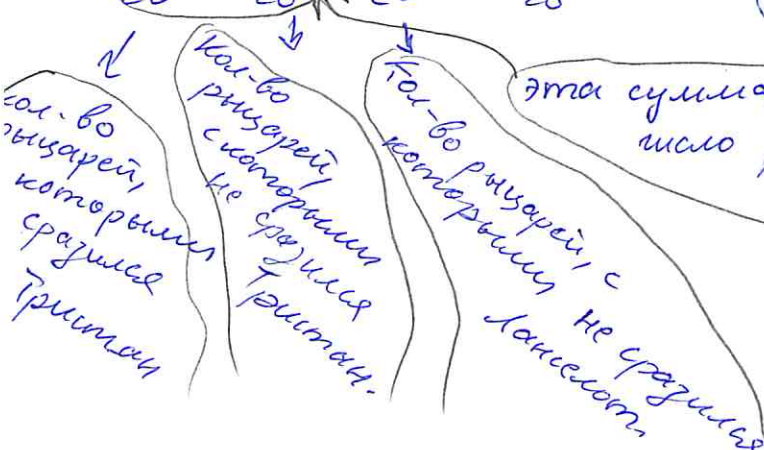 кол-во
рыцарей,
которыми
сразился
Тристан
Кол-во
рыцарей,
с которыми
не сразился
Тристан.
Кол-во рыцарей, с
которыми не сразился
Ланселот.
эта сумма
число